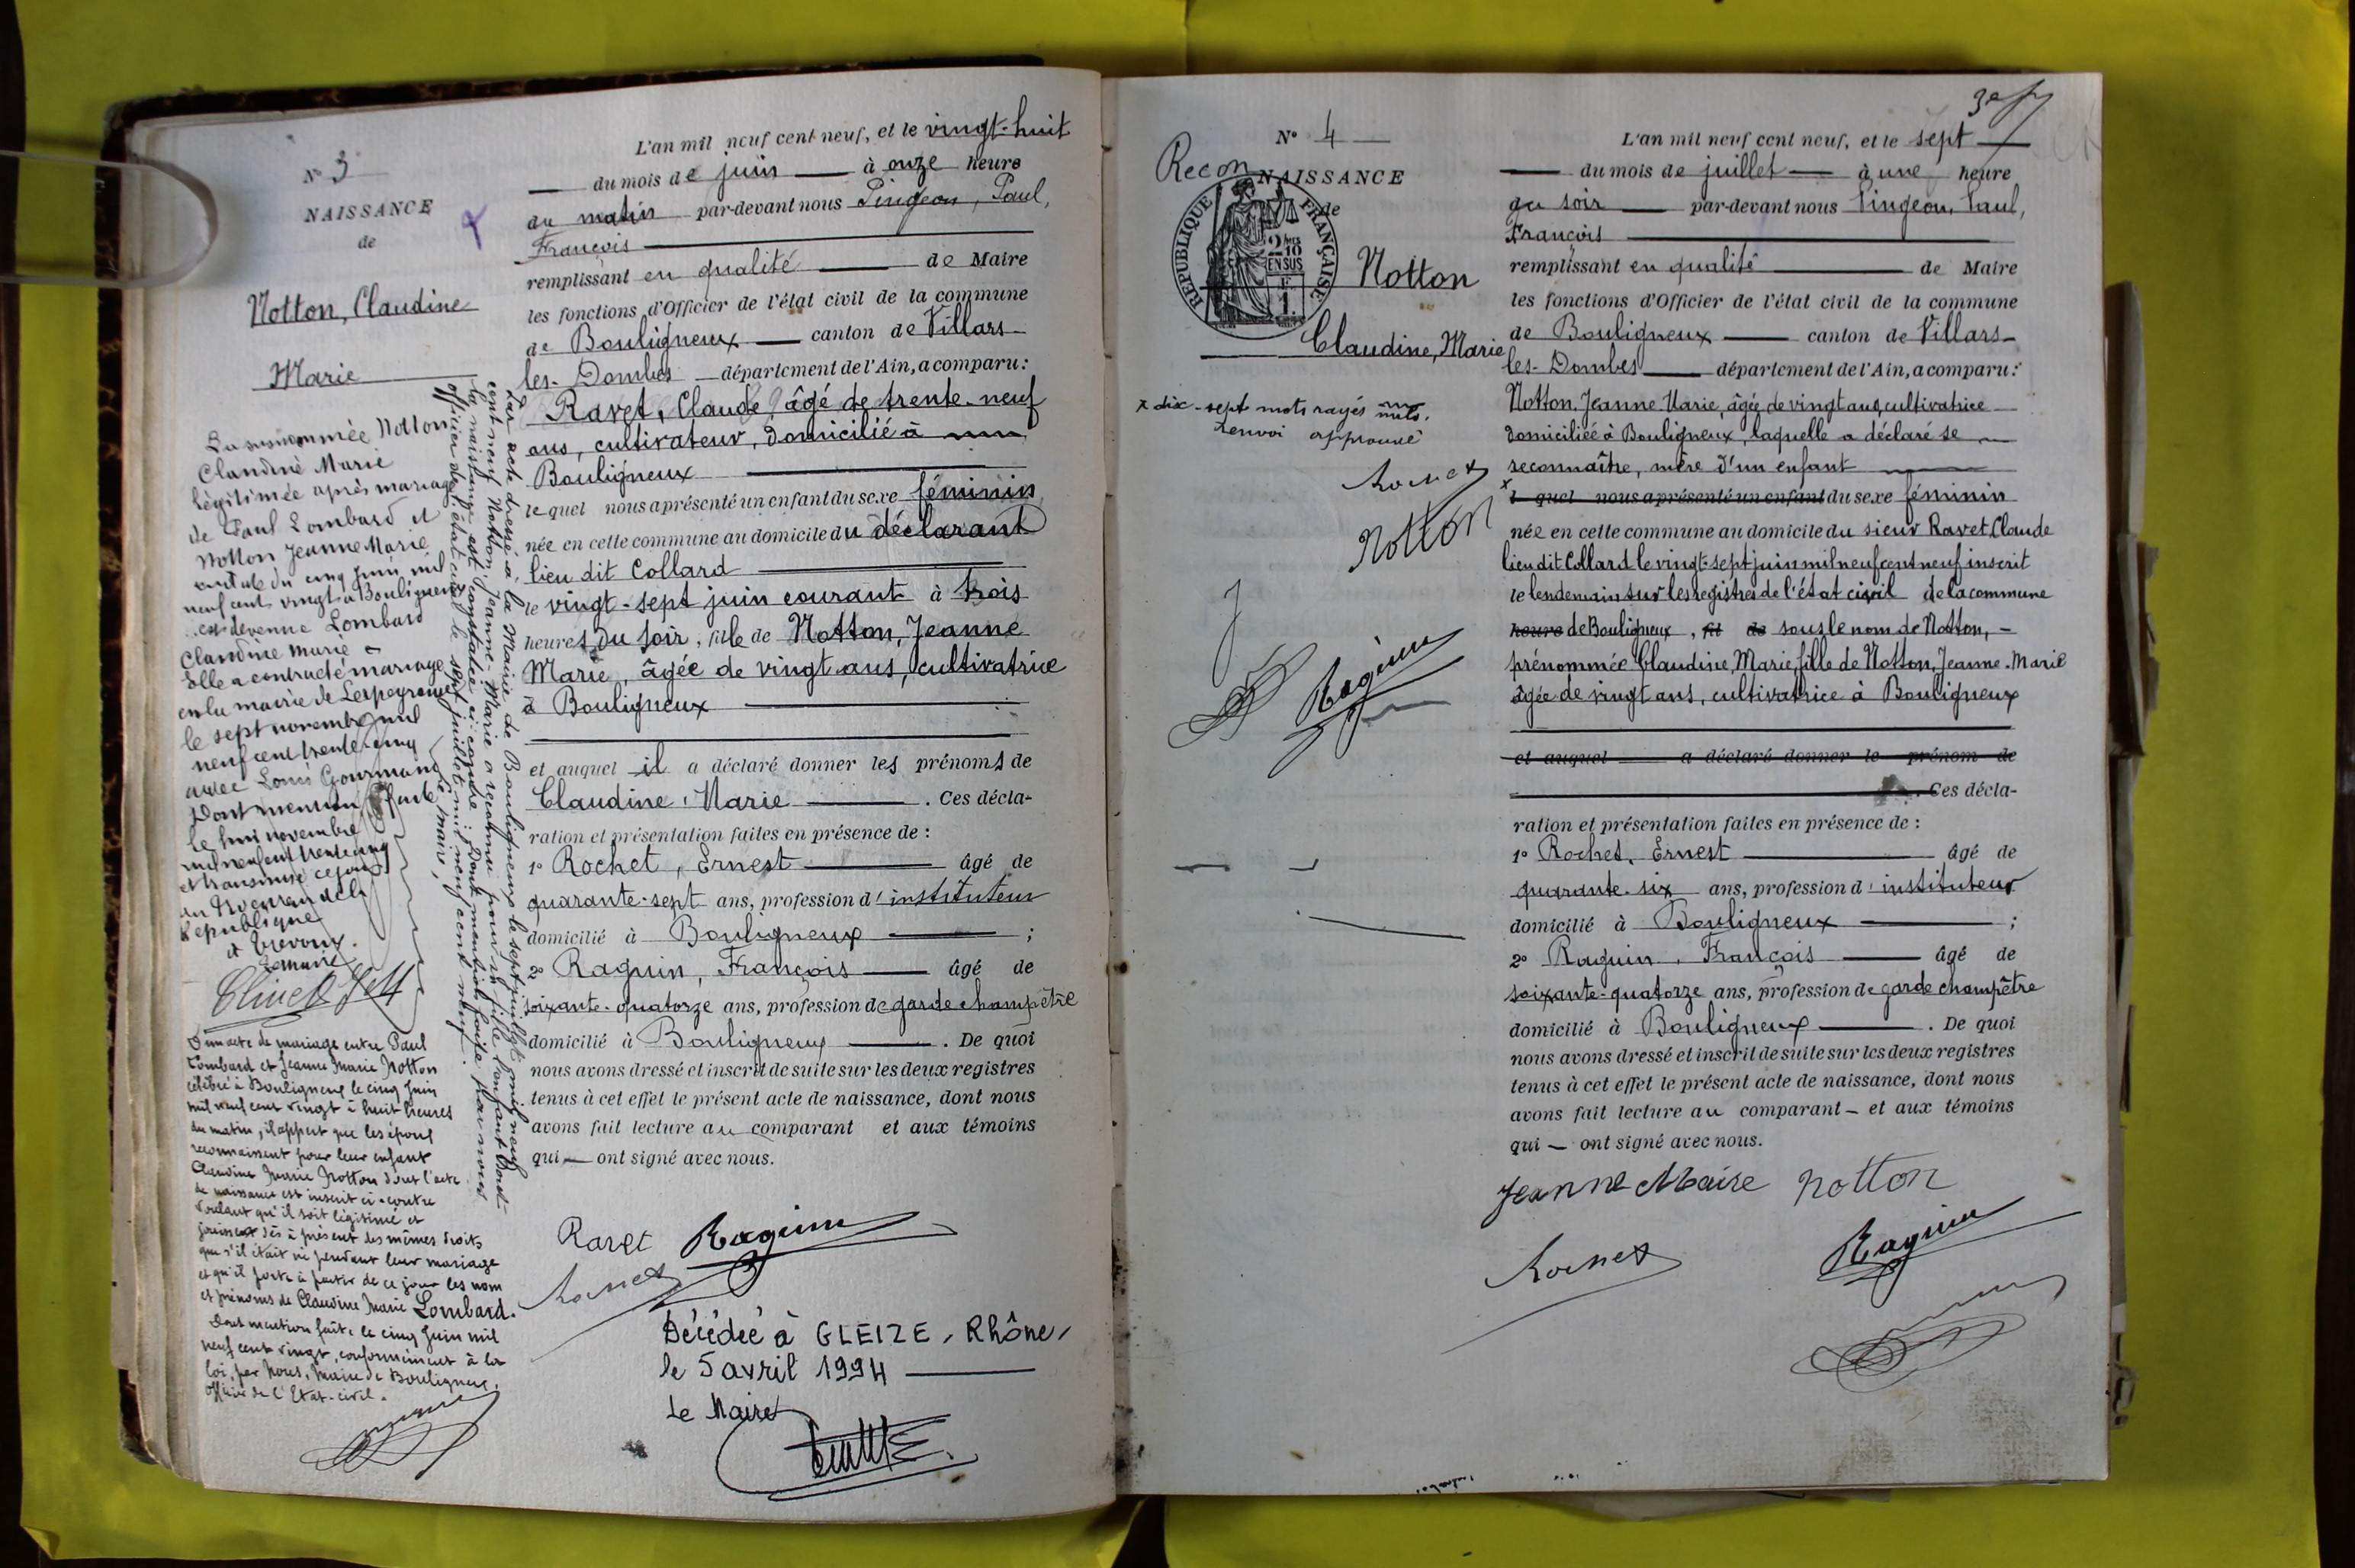 N° 3
NAISSANCE
de
Notton, Claudine
Marie
La susnommée Notton
Claudine Marie
légitimée après mariage
de Paul Lombard et
Notton Jeanne Marie
en date du cinq juin mil
neuf cent vingt à Bouligneux
est devenue Lombard
Claudine Marie
Elle a contracté mariage
en la mairie de
le sept novembre mil
neuf cent trente-cinq
avec Louis Gourmand
Dont mention faite
le huit novembre
mil neuf cent trente cinq
et transmise ce jour
au Procureur de la
République
à Trévoux.
Le maire
D'un acte de mariage entre Paul
Lombard et Jeanne Marie Notton
célébré à Bouligneux le cinq Juin
mil neuf cent vingt à huit heures
du matin, il appert que les époux
reconnaissent pour leur enfant
Claudine Marie Notton dont l'acte
de naissance est inscrit ci-contre
voulant qu'il soit légitimé et
jouissent dès à présent des mêmes droits
que s'il était né pendant leur mariage
et qu'il porte à partir de ce jour les nom
et prénoms de Claudine Marie Lombard.
Dont mention faite le cinq Juin mil
neuf cent vingt, conformément à la
loi, par Nous, Maire de Bouligneux,
Officier de l'Etat-civil.
Par acte dressé à la Mairie de Bouligneux le sept juillet mil neuf
cent neuf Notton, Jeanne-Marie a reconnu pour sa fille l'enfant dont
la naissance est constatée ci-contre. Dont mention faite par nous
officier de l'état civil le sept juillet mil neuf cent neuf.
Le maire,
L'an mil neuf cent neuf, et le vingt-huit
du mois de juin à onze heures
du matin par-devant nous Pingeon, Paul,
François
remplissant en qualité de Maire
les fonctions d'Officier de l'état civil de la commune
de Bouligneux canton de Villars-
les-Dombes département de l'Ain, a comparu:
Ravet, Claude, âgé de trente-neuf
ans, cultivateur, domicilié à
Bouligneux
lequel nous a présenté un enfant du sexe féminin
née en cette commune au domicile du déclarant
lieu dit Collard
le vingt-sept juin courant à trois
heures du soir, fille de Notton, Jeanne
Marie, âgée de vingt ans, cultivatrice
à Bouligneux
et auquel il a déclaré donner les prénoms de
Claudine, Marie. Ces décla-
ration et présentation faites en présence de :
1° Rochet, Ernest âgé de
quarante-sept ans, profession d'instituteur
domicilié à Bouligneux ;
2° Raguin, François âgé de
soixante-quatorze ans, profession de garde champêtre
domicilié à Bouligneux. De quoi
nous avons dressé et inscrit de suite sur les deux registres
tenus à cet effet le présent acte de naissance, dont nous
avons fait lecture au comparant et aux témoins
qui — ont signé avec nous.
Ravet Raguin
Rochet
Décédée à GLEIZE, Rhône,
le 5 avril 1994
Le Maire
N° 4
Recon
NAISSANCE
de
RÉPUBLIQUE FRANÇAISE
2/10 EN SUS
Notton
Claudine, Marie
x dix-sept mots rayés nuls.
renvoi approuvé
Rochet
Notton
Raguin
3e f
L'an mil neuf cent neuf, et le sept
du mois de juillet à une heure
du soir par-devant nous Pingeon, Paul,
François
remplissant en qualité de Maire
les fonctions d'Officier de l'état civil de la commune
de Bouligneux canton de Villars-
les-Dombes département de l'Ain, a comparu:
Notton, Jeanne Marie, âgée de vingt ans, cultivatrice
domiciliée à Bouligneux, laquelle a déclaré se
reconnaître, mère d'un enfant
x l quel nous a présenté un enfant du sexe féminin
née en cette commune au domicile du sieur Ravet, Claude
lieu dit Collard le vingt-sept juin mil neuf cent neuf inscrit
le lendemain sur les registres de l'état civil de la commune
heure de Bouligneux, fil de sous le nom de Notton, -
prénommée Claudine, Marie, fille de Notton, Jeanne-Marie
âgée de vingt ans, cultivatrice à Bouligneux
et auquel a déclaré donner le prénom de
. Ces décla-
ration et présentation faites en présence de :
1° Rochet, Ernest âgé de
quarante-six ans, profession d'instituteur
domicilié à Bouligneux ;
2° Raguin, François âgé de
soixante-quatorze ans, profession de garde champêtre
domicilié à Bouligneux. De quoi
nous avons dressé et inscrit de suite sur les deux registres
tenus à cet effet le présent acte de naissance, dont nous
avons fait lecture au comparant — et aux témoins
qui — ont signé avec nous.
Jeanne Marie Notton
Rochet Raguin